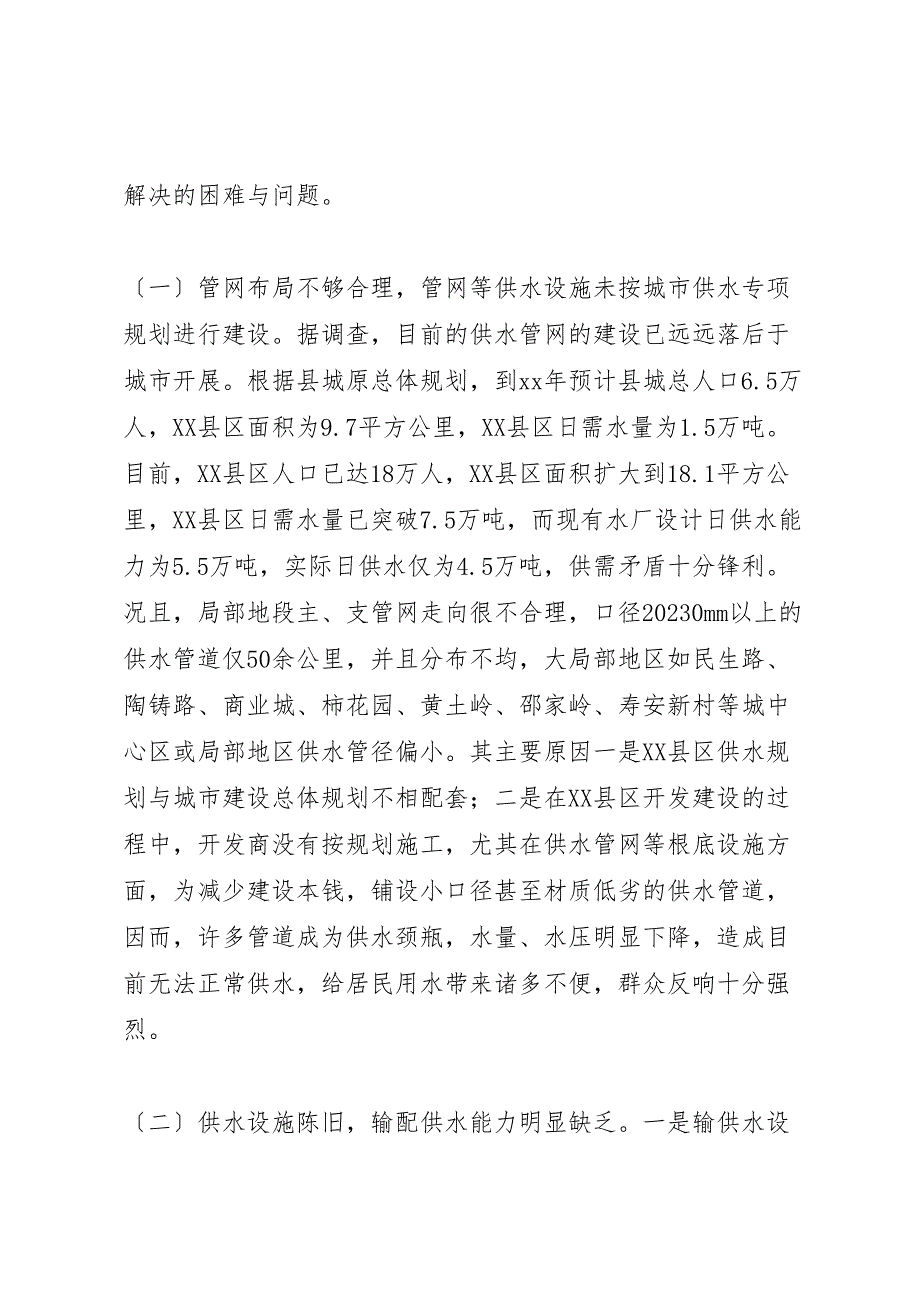 解决的困难与问题。
〔一〕管网布局不够合理，管网等供水设施未按城市供水专项
规划进行建设。据调查，目前的供水管网的建设已远远落后于
城市开展。根据县城原总体规划，到xx年预计县城总人口6.5万
人，XX县区面积为9.7平方公里，XX县区日需水量为1.5万吨。
目前，XX县区人口已达18万人，XX县区面积扩大到18.1平方公
里，XX县区日需水量已突破7.5万吨，而现有水厂设计日供水能
力为5.5万吨，实际日供水仅为4.5万吨，供需矛盾十分锋利。
况且，局部地段主、支管网走向很不合理，口径20230mm以上的
供水管道仅50余公里，并且分布不均，大局部地区如民生路、
陶铸路、商业城、柿花园、黄土岭、邵家岭、寿安新村等城中
心区或局部地区供水管径偏小。其主要原因一是XX县区供水规
划与城市建设总体规划不相配套；二是在XX县区开发建设的过
程中，开发商没有按规划施工，尤其在供水管网等根底设施方
面，为减少建设本钱，铺设小口径甚至材质低劣的供水管道，
因而，许多管道成为供水颈瓶，水量、水压明显下降，造成目
前无法正常供水，给居民用水带来诸多不便，群众反响十分强
烈。
〔二〕供水设施陈旧，输配供水能力明显缺乏。一是输供水设